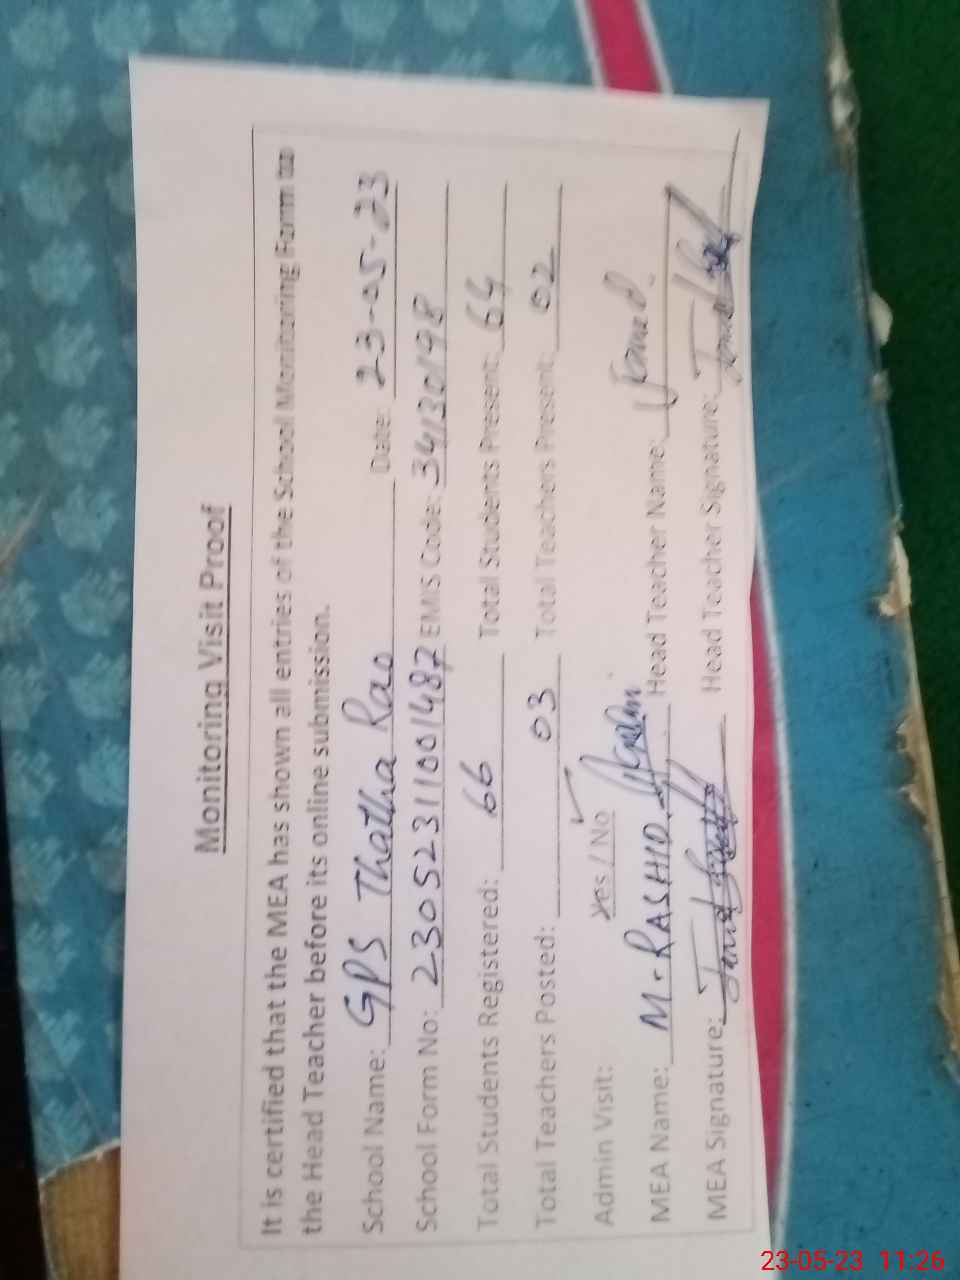 Monitoring Visit Proof
It is certified that the MEA has shown all entries of the School Monitoring Form to
the Head Teacher before its online submission.
School Name: GPS Thatha Rao Date: 23-05-23
School Form No: 23052311001487 EMIS Code: 34130198
Total Students Registered: 66 Total Students Present: 64
Total Teachers Posted: 03 Total Teachers Present: 02
Admin Visit: Yes / No ✓
MEA Name: M. RASHID Head Teacher Name: Javed
MEA Signature: Head Teacher Signature:
23-05-23 11:26